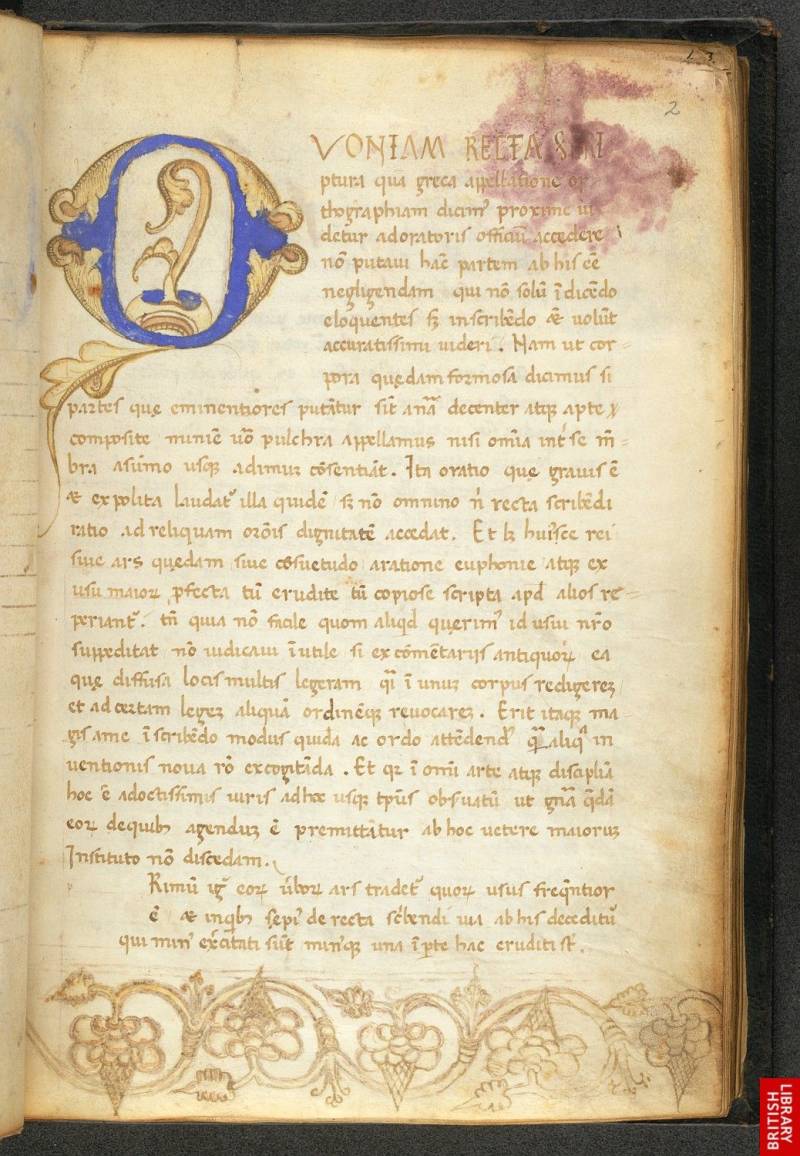 2
QVONIAM RECTA SCRI
ptura quā greca appellatione or
thographiam dicimꝰ proxime ui
detur adoratoris officiū accedere
nō putaui hāc partem ab his eē
negligendam qui nō solū ī dicēdo
eloquentes sꝫ inscribēdo & uolūt
accuratissimi uideri. Nam ut cor-
pora quędam formosa dicimus si
partes quę eminentiores putātur sīt
composite decenter atqꝫ apte
pulchra appellamus nisi omīa
bra asūmo usqꝫ adimuꝫ cōsentiāt. Ita oratio quę grauis ē
& expolita laudatᷣ illa quidē sꝫ nō omnino ñ recta scribēdi
ratio ad reliquam orōis dignitatē accedat. Et lꝫ huīsce rei
siue ars quędam siue cōsuetudo aratione euphonie atqꝫ ex
usu maioꝝ ꝑfecta tū erudite tū copiose scripta apd alios re-
periantᷣ. tñ quia nō facile quom aliqd querimꝰ id usui nr̄o
suppeditat nō iudicaui īutile si ex cōmētarijs antiquoꝝ ea
quę diffusa locis multis legeram ī unuꝫ corpus redigereꝫ
et ad certam legeꝫ aliquā ordinēqꝫ reuocareꝫ. Erit itaqꝫ ma
gis ame īscribēdo modus quidā ac ordo attēdendꝰ in
uentionis noua rō excogitāda. Et qꝛ ī omī arte atqꝫ disciplīa
hoc ē adoctissimis uiris adhoc usqꝫ tp̄us obsuatū ut gn̄a q̄dā
eoꝝ dequibꝫ agenduꝫ ē premittātur ab hoc uetere maioruꝫ
Instituto nō discedam.
Rimū igᷣ eoꝝ ūboꝝ ars tradetᷣ quoꝝ usus freq̄ntior
ē & inqibꝫ sepiꝰ de recta sc̄bendi uia ab his deceditᷣ
qui minꝰ exc̄itati sūt minꝰqꝫ una ī ꝑte hac eruditi sᷣt.
BRITISH
LIBRARY